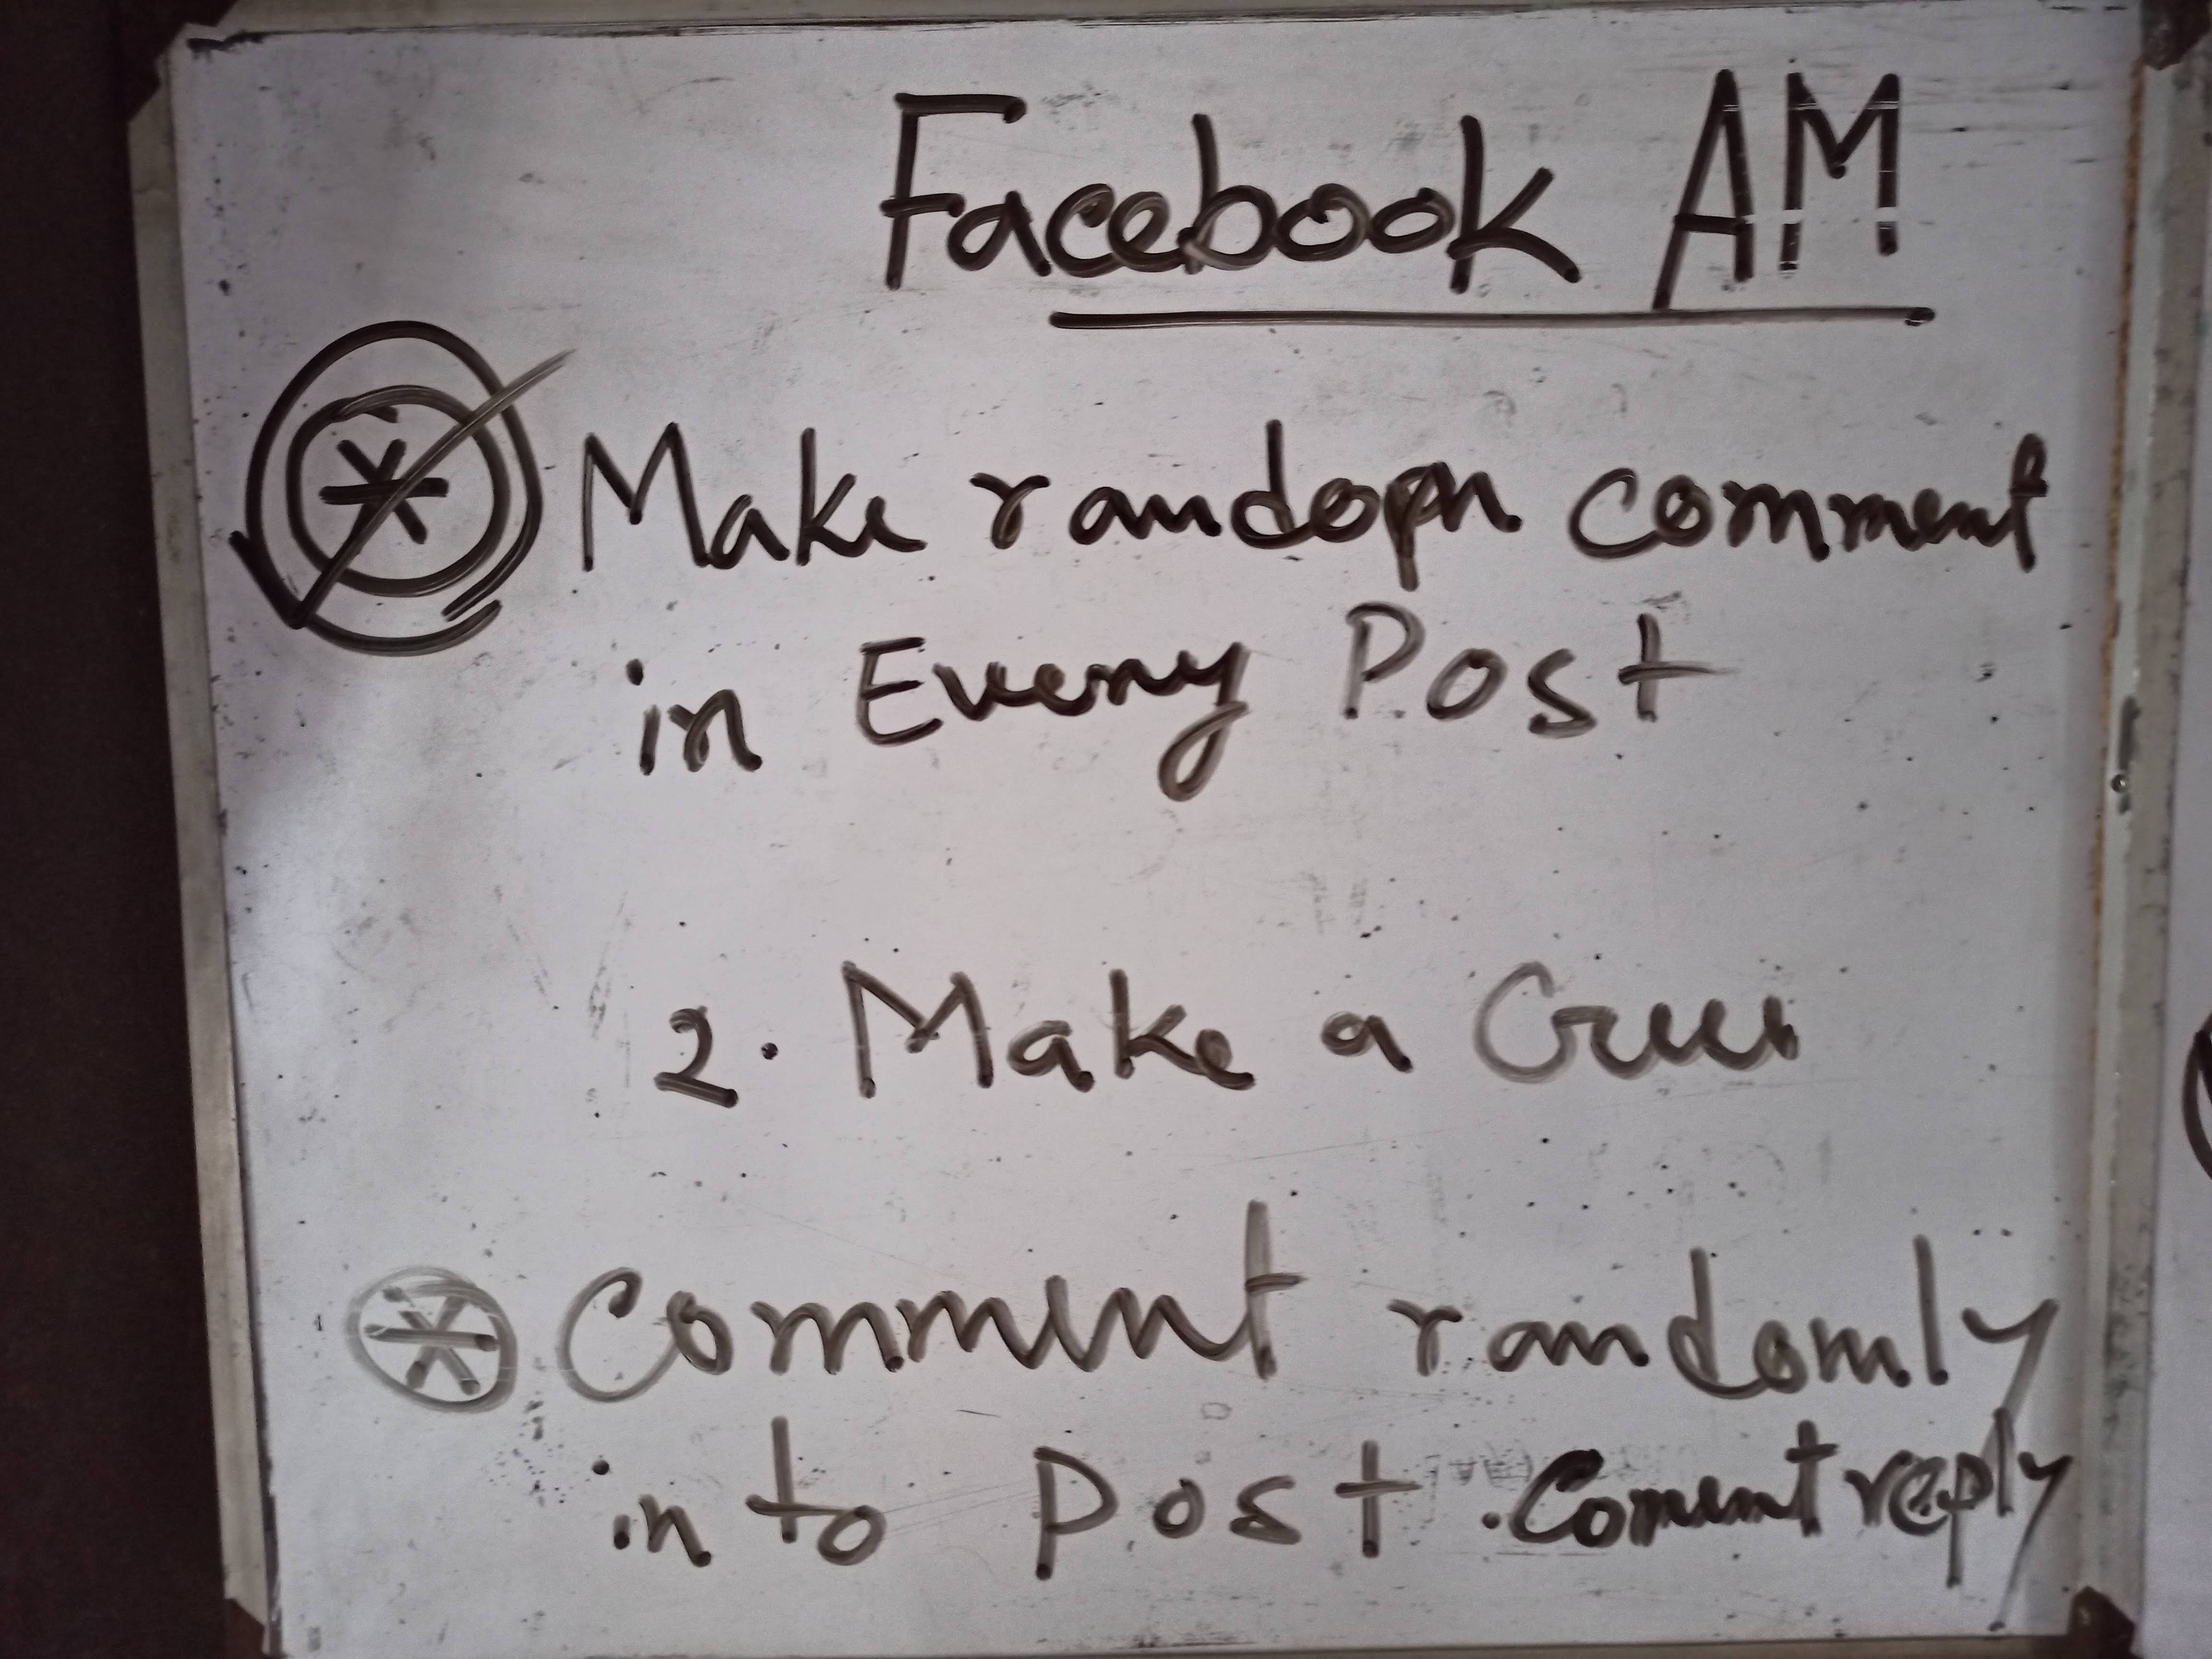 Facebook AM
Make random comment
in Every Post
2. Make a
Comment randomly
in to Post . Coment reply